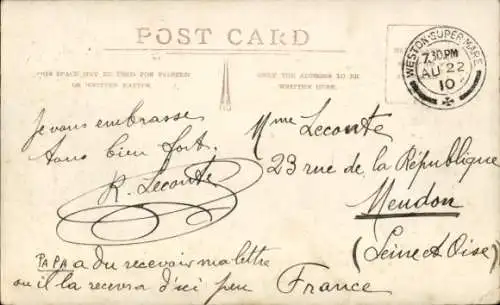 POST CARD
THIS SPACE MAY BE USED FOR PRINTED
OR WRITTEN MATTER.
ONLY THE ADDRESS TO BE
WRITTEN HERE.
WESTON-SUPER-MARE
7.30 PM
AU 22
10
Je vous embrasse
tous bien fort.
R. Leconte
PAPA a du recevoir ma lettre
ou il la recevra d'ici peu
Mme Leconte
23 rue de la République
Meudon
(Seine et Oise)
France